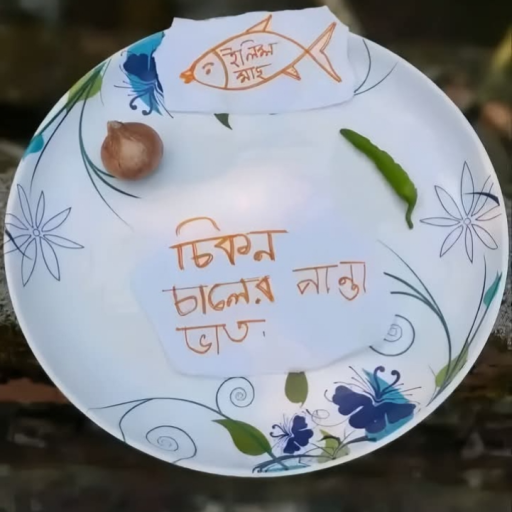 ইলিশ
মাছ
চিকন
চালের পান্তা
ভাত.